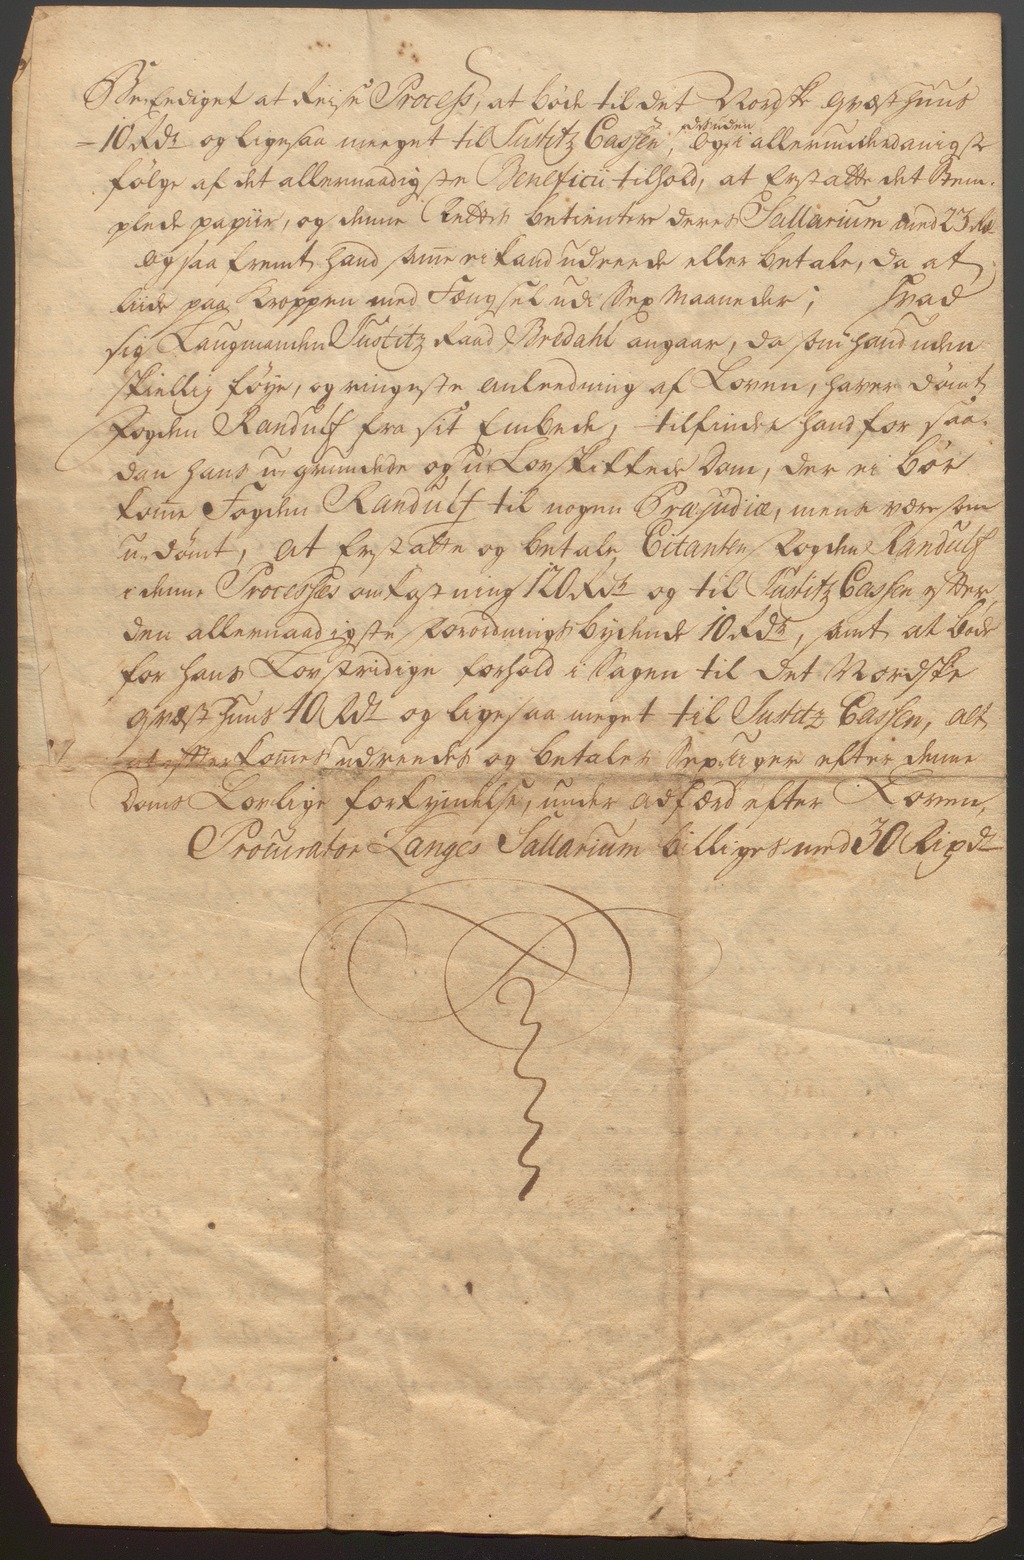 Beneediget at Reise Process, at bøde til det Nordske qvæsthuus
10 Rdr og ligesaa meeget til Justitz Cassen, desuden og i allerunderdanigste
følge af det allernaadigste Beneficii tilhold, at Erstatte det Stem-
plede papiir, og denne Rettes betientere deres Sallarium med 23 Rd
og saa fremt hand samme ei kand udreede eller betale, da at
liide paa Kroppen med Fængsel udi Sex Maaneder; Hvad
sig Laugmanden Justitz Raad Bredahl angaar, da som hand uden
skiellig føye, og ringeste anleedning af Loven, haver dømt
Fogden Randulf fra sit Embede, tilfindes hand for saa-
dan hans u-grundede og u-Lovskikkede Dom, der ei bør
komme Fogden Randulf til nogen Præjudice, mens være som
u-dømt, at Erstatte og betale Citanten Fogden Randulf
i denne Processes omkostning 120 Rdr og til Justitz Cassen efter
den allernaadigste forordnings bydende 10 Rdr, samt at bøde
for hans Lovstridige forhold i Sagen til det Nordske
qvæsthuus 40 Rdr og ligesaa meget til Justitz Cassen, alt
at efterkommes udreedes og betales Sex uger efter denne
Doms Lovlige forkyndelse, under adfærd efter Loven,
Procurator Langes Sallarium billiges med 30 Rixdr